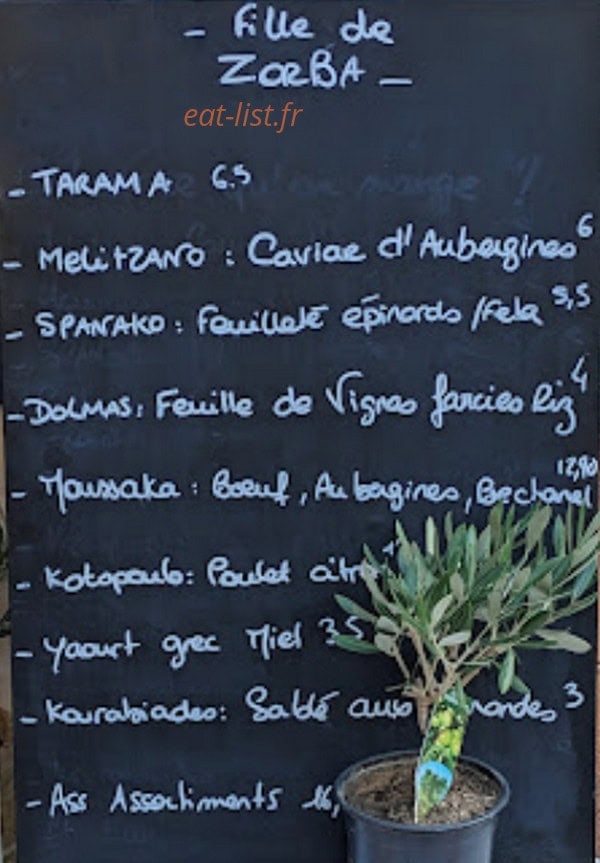 - Fille de
ZORBA -
eat-list.fr
- TARAMA 6.5
- MELITZANO : Caviar d'Aubergines 6
- SPANAKO : Feuilleté épinards / Feta 5,5
- DOLMAS : Feuille de Vignes farcies Riz 4
- Moussaka : Boeuf, Aubergines, Bechamel 12,90
- Kotopoulo : Poulet citr
- Yaourt grec Miel 3.5
- Kourabiades : Sablé aux 3
- Ass Assortiments 16,